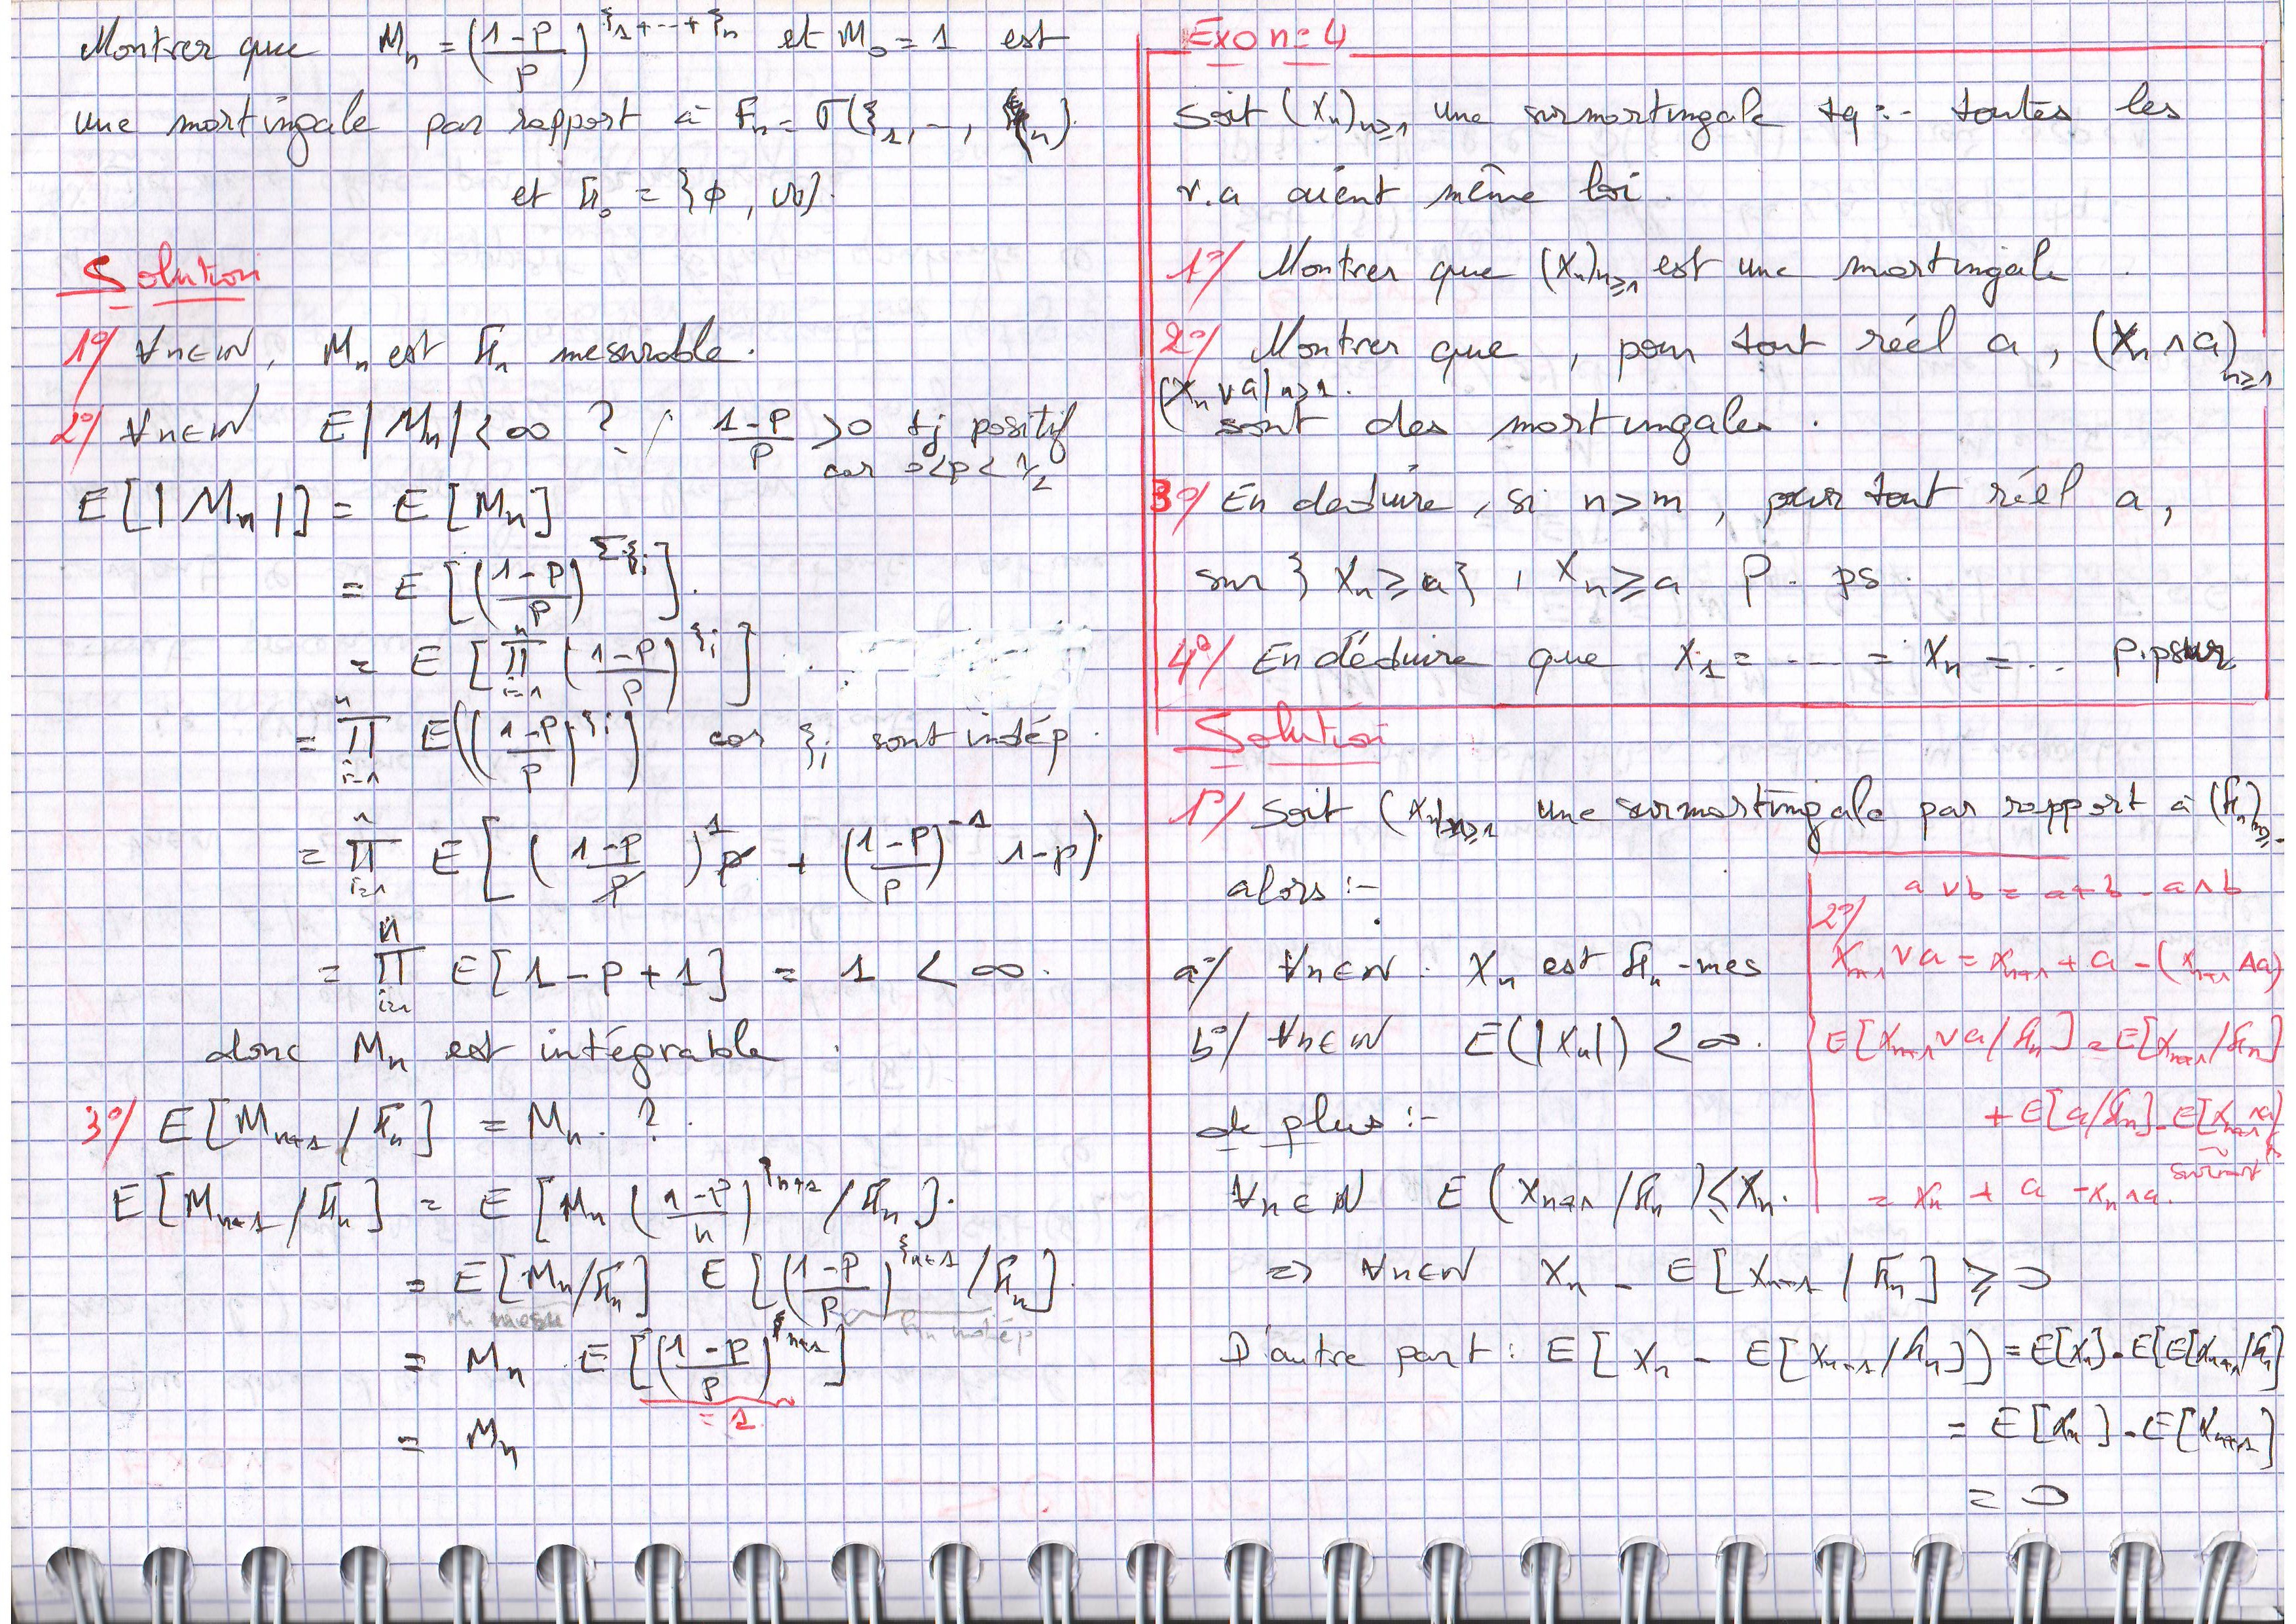 Montrer que M_n = ((1-p)/p)^{ξ_1+--+ξ_n} et M_0 = 1 est
une martingale par rapport à F_n = σ(ξ_1, -, ξ_n).
et F_0 = {∅, Ω}.
Solution
1°/ ∀n∈N, M_n est F_n mesurable.
2°/ ∀n∈N E|M_n| < ∞ ? / (1-p)/p > 0 tj positif
car 0<p<1/2
E[|M_n|] = E[M_n]
= E[((1-p)/p)^{Σξ_i}].
= E[∏_{i=1}^{n} ((1-p)/p)^{ξ_i}]
= ∏_{i=1}^{n} E(((1-p)/p)^{ξ_i}) car ξ_i sont indép.
= ∏_{i=1}^{n} E[((1-p)/p)^1 p + ((1-p)/p)^{-1} 1-p).
= ∏_{i=1}^{n} E[1-p+1] = 1 < ∞.
donc M_n est intégrable.
3°/ E[M_{n+1}/F_n] = M_n. ?
E[M_{n+1}/F_n] = E[M_n ((1-p)/n)^{ξ_{n+1}}/F_n].
= E[M_n/F_n] E[((1-p)/p)^{ξ_{n+1}}/F_n].
indép
= M_n . E[((1-p)/p)^{ξ_{n+1}}]
= 1.
= M_n
Exo n=4
Soit (X_n)_{n≥1} une surmartingale tq :- toutes les
v.a aient même loi.
1°/ Montrer que (X_n)_{n≥1} est une martingale.
2°/ Montrer que, pour tout réel a, (X_n ∧ a)_{n≥1}
(X_n ∨ a)_{n≥1}.
sont des martingales.
3°/ En deduire, si n>m, pour tout réel a,
sur {X_n ≥ a}, X_n ≥ a P. ps.
4°/ En déduire que X_1 = --- = X_n = ... P.psur
Solution
1°/ Soit (X_n)_{n≥1} une surmartingale par rapport à (F_n)_{n≥.}
alors :-
a°/ ∀n∈N. X_n est F_n-mes
b°/ ∀n∈N E(|X_n|) < ∞.
de plus :-
∀n∈N E(X_{n+1}/F_n) ≤ X_n.
=> ∀n∈N X_n - E[X_{n+1}/F_n] ≥ 0
D'autre part : E[X_n - E[X_{n+1}/F_n]) = E[X_n] - E[E[X_{n+1}/F_n]
= E[X_n] - E[X_{n+1}]
= 0
a∨b = a+b - a∧b
2°/
X_{n+1}∨a = X_{n+1} + a - (X_{n+1}∧a)
E[X_{n+1}∨a/F_n] = E[X_{n+1}/F_n]
+ E[a/F_n] - E[X_{n+1}∧a/F_n
surmart
= X_n + a - X_n∧a.